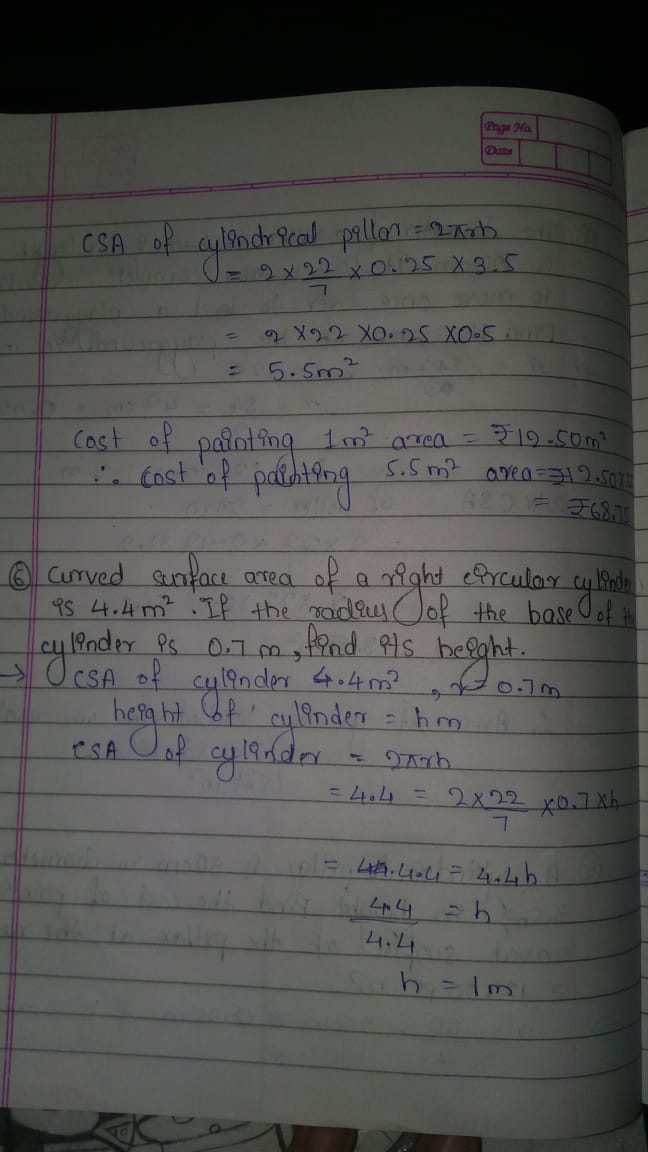 Page No.
Date
CSA of cylindrical pillar = 2πrh
= 2 × 22/7 × 0.25 × 3.5
= 2 × 22 × 0.25 × 0.5
= 5.5m²
Cost of painting 1m² area = ₹12.50m²
∴ Cost of painting 5.5m² area = ₹12.50×
= ₹68.75
⑥ Curved surface area of a right circular cylinder
is 4.4m². If the radius of the base of the
cylinder is 0.7 m, find its height.
→ CSA of cylinder 4.4m², r = 0.7m
height of cylinder = h m
CSA of cylinder = 2πrh
= 4.4 = 2 × 22/7 × 0.7 × h
= 4.4 = 4.4h
4.4/4.4 = h
h = 1m